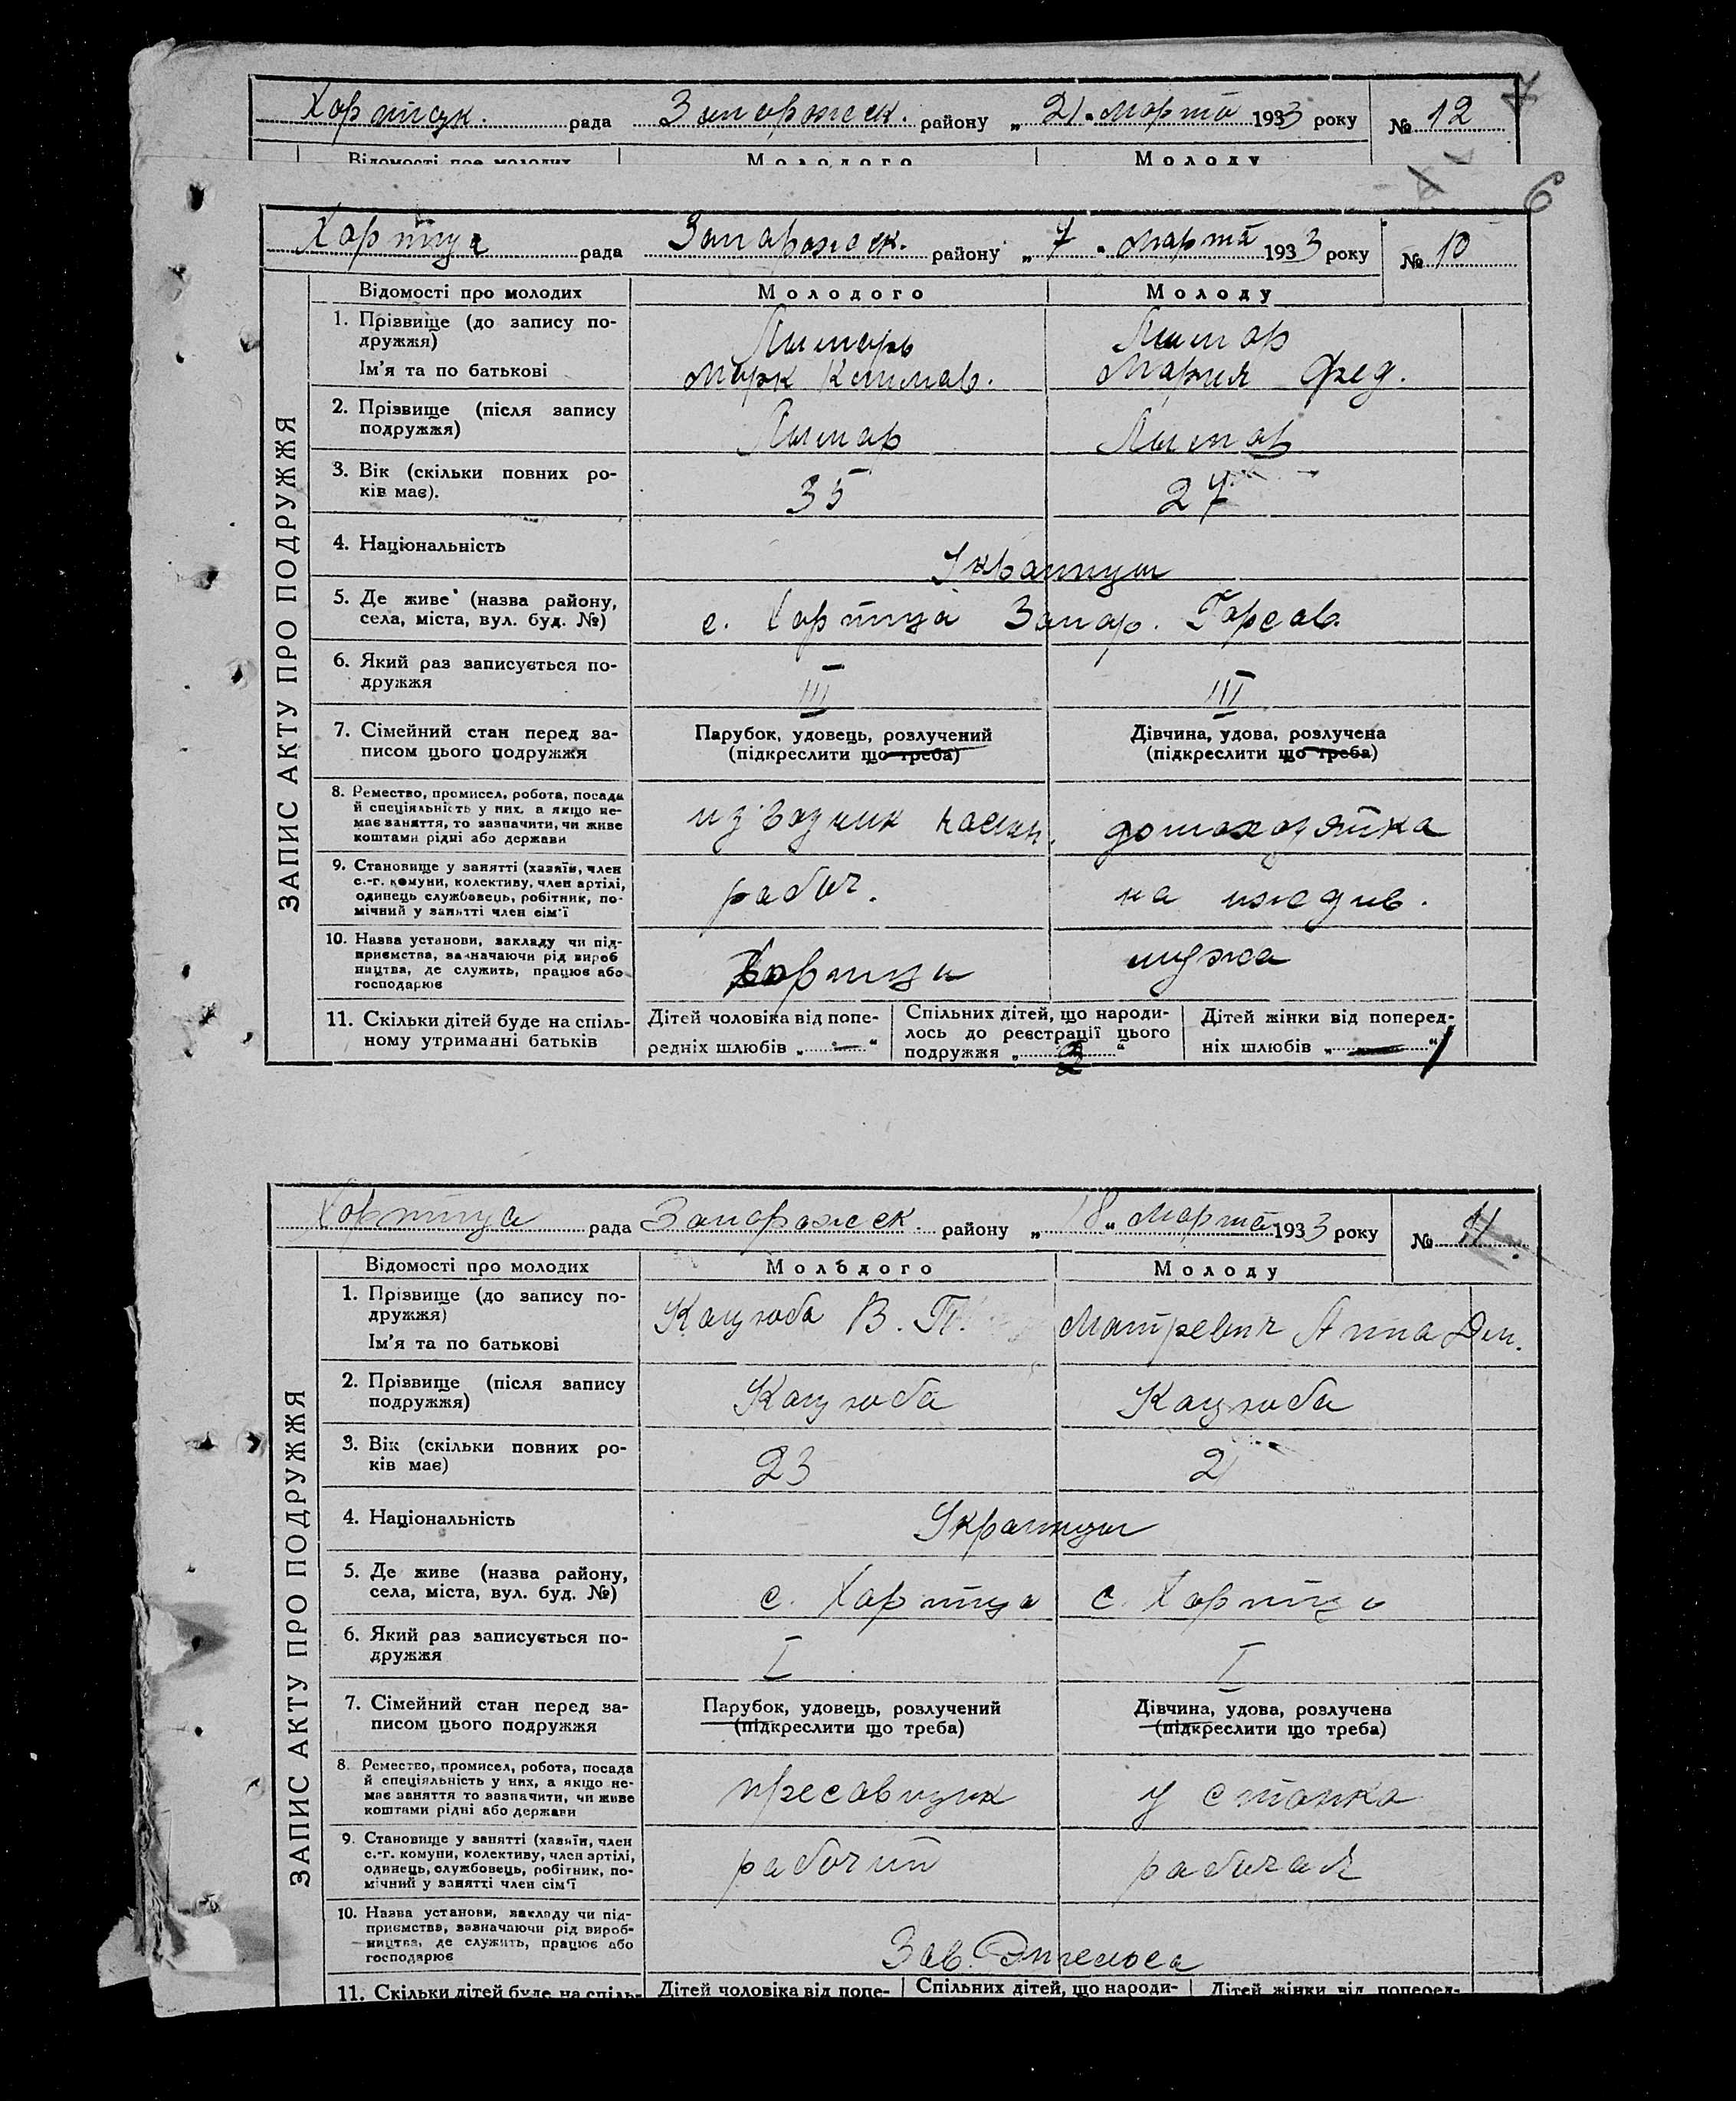 Хортицк. рада Запорожск. району „ 21 " марта 1933 року № 12
Відомості про молодих Молодого Молоду
6
Хортица рада Запорожск. району „ 7 " марта 1933 року № 10
ЗАПИС АКТУ ПРО ПОДРУЖЖЯ
Відомості про молодих Молодого Молоду
1. Прізвище (до запису по-
дружжя)
Ім'я та по батькові
Лымарь Лымар
Марк Климов. Мария Фед.
2. Прізвище (після запису
подружжя)
Лымар Лымар
3. Вік (скільки повних ро-
ків має).
35 27
4. Національність
Украинцы
5. Де живе (назва району,
села, міста, вул. буд. №)
с. Хортица Запор. Горсов.
6. Який раз записується по-
дружжя
III III
7. Сімейний стан перед за-
писом цього подружжя
Парубок, удовець, розлучений
(підкреслити що треба)
Дівчина, удова, розлучена
(підкреслити що треба)
8. Ремество, промисел, робота, посада
й спеціяльність у них, а якщо не-
має заняття, то зазначити, чи живе
коштами рідні або держави
извозчик домохозяйка
9. Становище у занятті (хазяїн, член
с.-г. комуни, колективу, член артілі,
одинець службовець, робітник, по-
мічний у занятті член сім'ї
рабоч. на иждив.
10. Назва установи, закладу чи під-
приємства, зазначаючи рід вироб
ництва, де служить, працює або
господарює
Хортица мужа
11. Скільки дітей буде на спіль-
ному утриманні батьків
Дітей чоловіка від попе-
редніх шлюбів „ — "
Спільних дітей, що народи-
лось до реєстрації цього
подружжя „ 2 "
Дітей жінки від поперед-
ніх шлюбів „ — " 1
Хортица рада Запорожск. району „ 18 " марта 1933 року № 11
ЗАПИС АКТУ ПРО ПОДРУЖЖЯ
Відомості про молодих Молодого Молоду
1. Прізвище (до запису по-
дружжя)
Ім'я та по батькові
Кацюба В. П. Матревич Анна Дем.
2. Прізвище (після запису
подружжя)
Кацюба Кацюба
3. Вік (скільки повних ро-
ків має)
23 21
4. Національність
Украинцы
5. Де живе (назва району,
села, міста, вул. буд. №)
с. Хортица с. Хортица
6. Який раз записується по-
дружжя
I I
7. Сімейний стан перед за-
писом цього подружжя
Парубок, удовець, розлучений
(підкреслити що треба)
Дівчина, удова, розлучена
(підкреслити що треба)
8. Ремество, промисел, робота, посада
й спеціяльність у них, а якщо не-
має заняття то зазначити, чи живе
коштами рідні або держави
пресовщик у станка
9. Становище у занятті (хазяїн, член
с.-г. комуни, колективу, член артілі,
одинець, службовець, робітник, по-
мічний у занятті член сім'ї
рабочий рабочая
10. Назва установи, закладу чи під-
приємства, зазначаючи рід вироб-
ництва, де служить, працює або
господарює
Зав. Энгельса
11. Скільки дітей буде на спіль- Дітей чоловіка від попе- Спільних дітей, що народи- Дітей жінки від поперед-